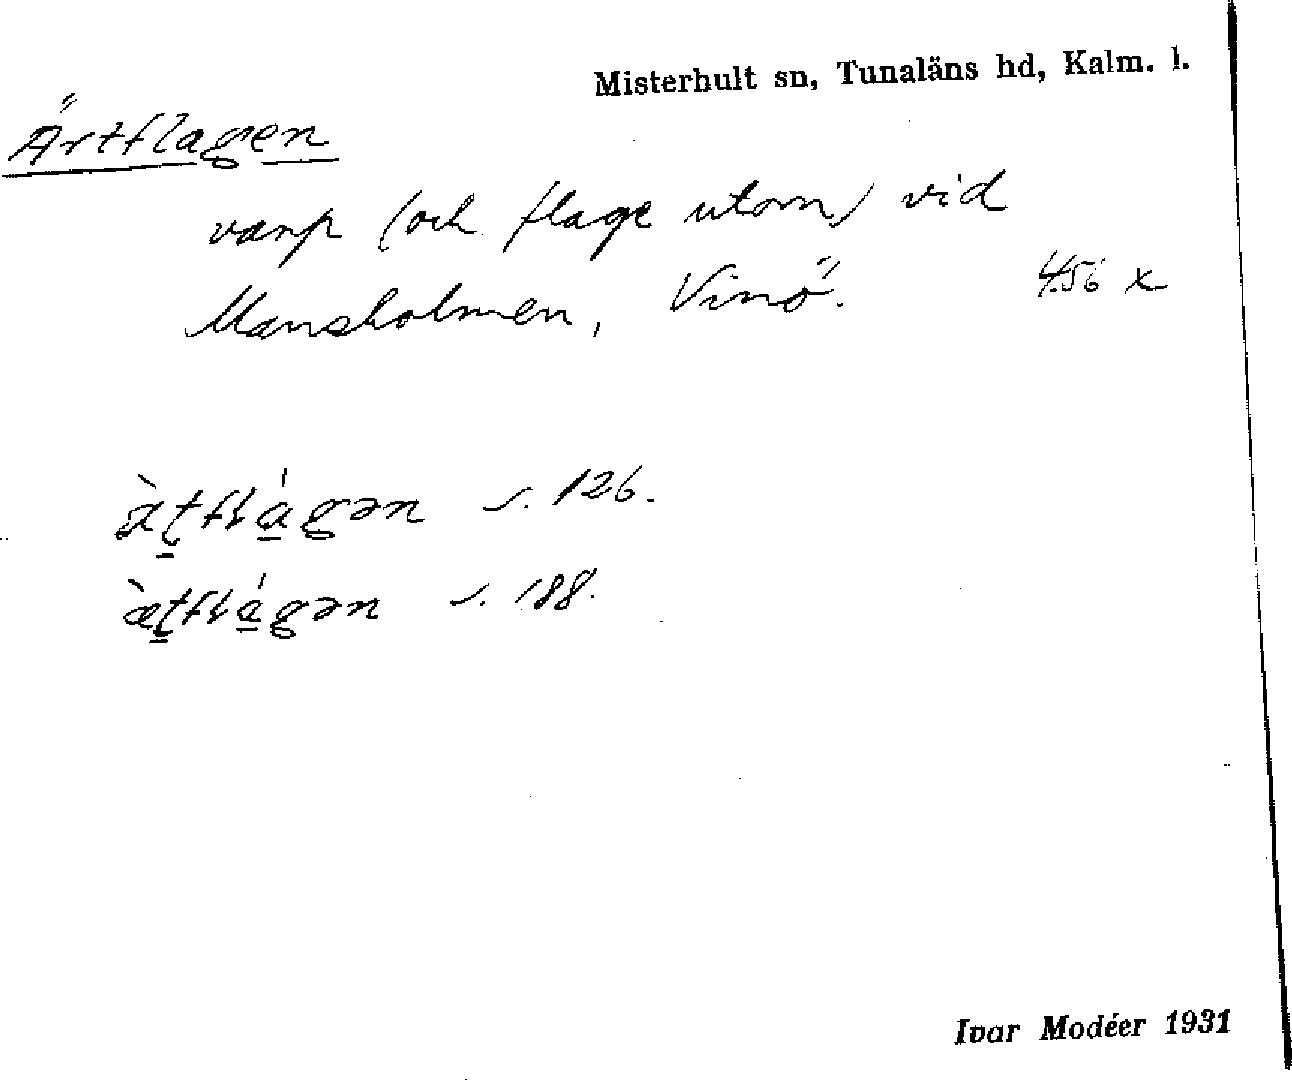 Misterhult sn, Tunaläns hd, Kalm. l.
Ärtflagen
varp (och flage utom) vid
Mansholmen, Vinö. 456 x
s. 126.
s. 188.
Ivar Modéer 1931